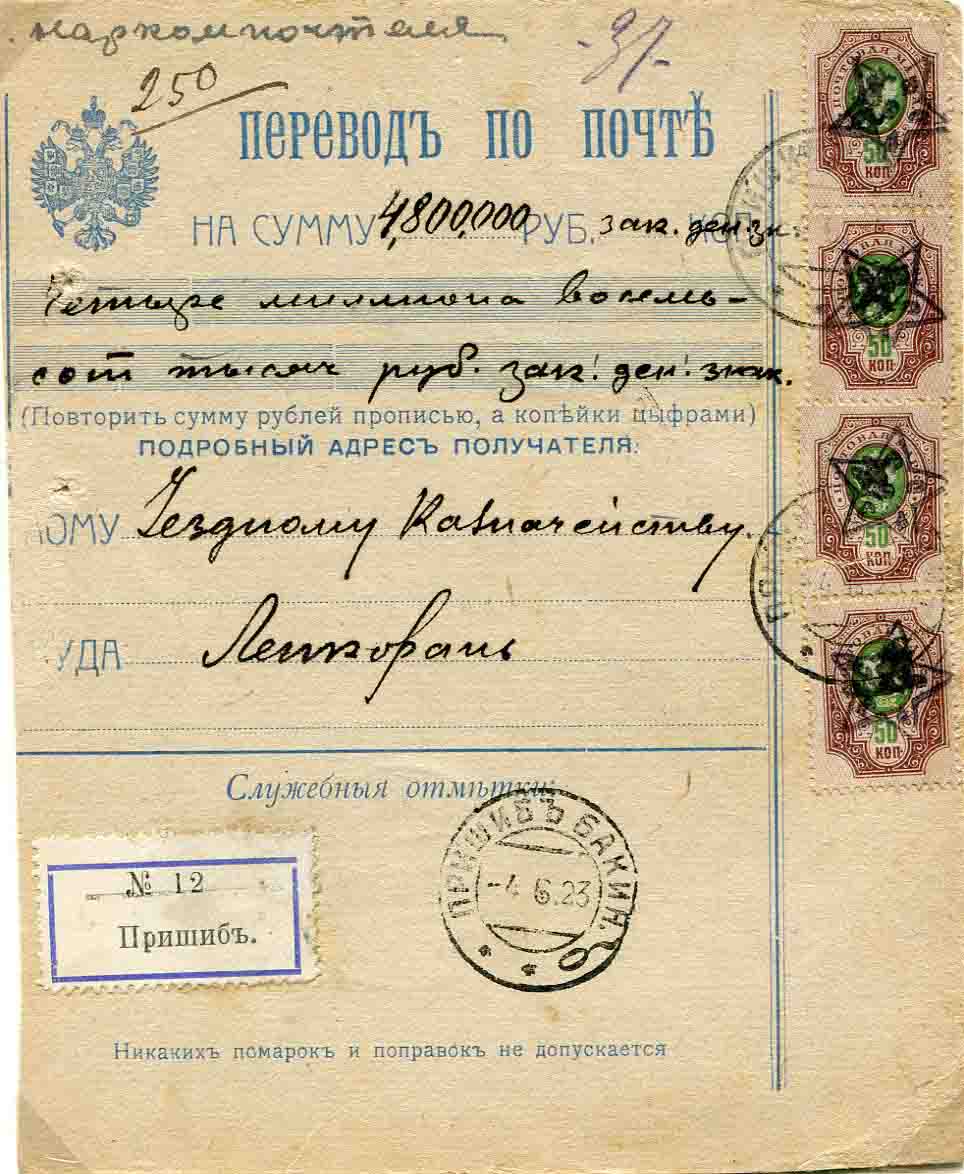 наркомпочтеля
37
250
ПЕРЕВОДЪ ПО ПОЧТѢ
НА СУММУ 4,800,000 РУБ. зак. ден. зн. КОП.
Четыре миллиона восемь-
сот тысяч руб. зак. ден. знак.
(Повторить сумму рублей прописью, а копѣйки цыфрами)
ПОДРОБНЫЙ АДРЕСЪ ПОЛУЧАТЕЛЯ:
ОМУ Уездному Казначейству.
УДА Ленкорань
Служебныя отмѣтки:
№ 12
Пришибъ.
ПРИШИБЪ БАКИН.
-4.6.23
Никакихъ помарокъ и поправокъ не допускается
ПОЧТОВАЯ МАРКА
50
КОП
50
КОП
ПОЧТОВАЯ МАРКА
50
КОП
50
КОП